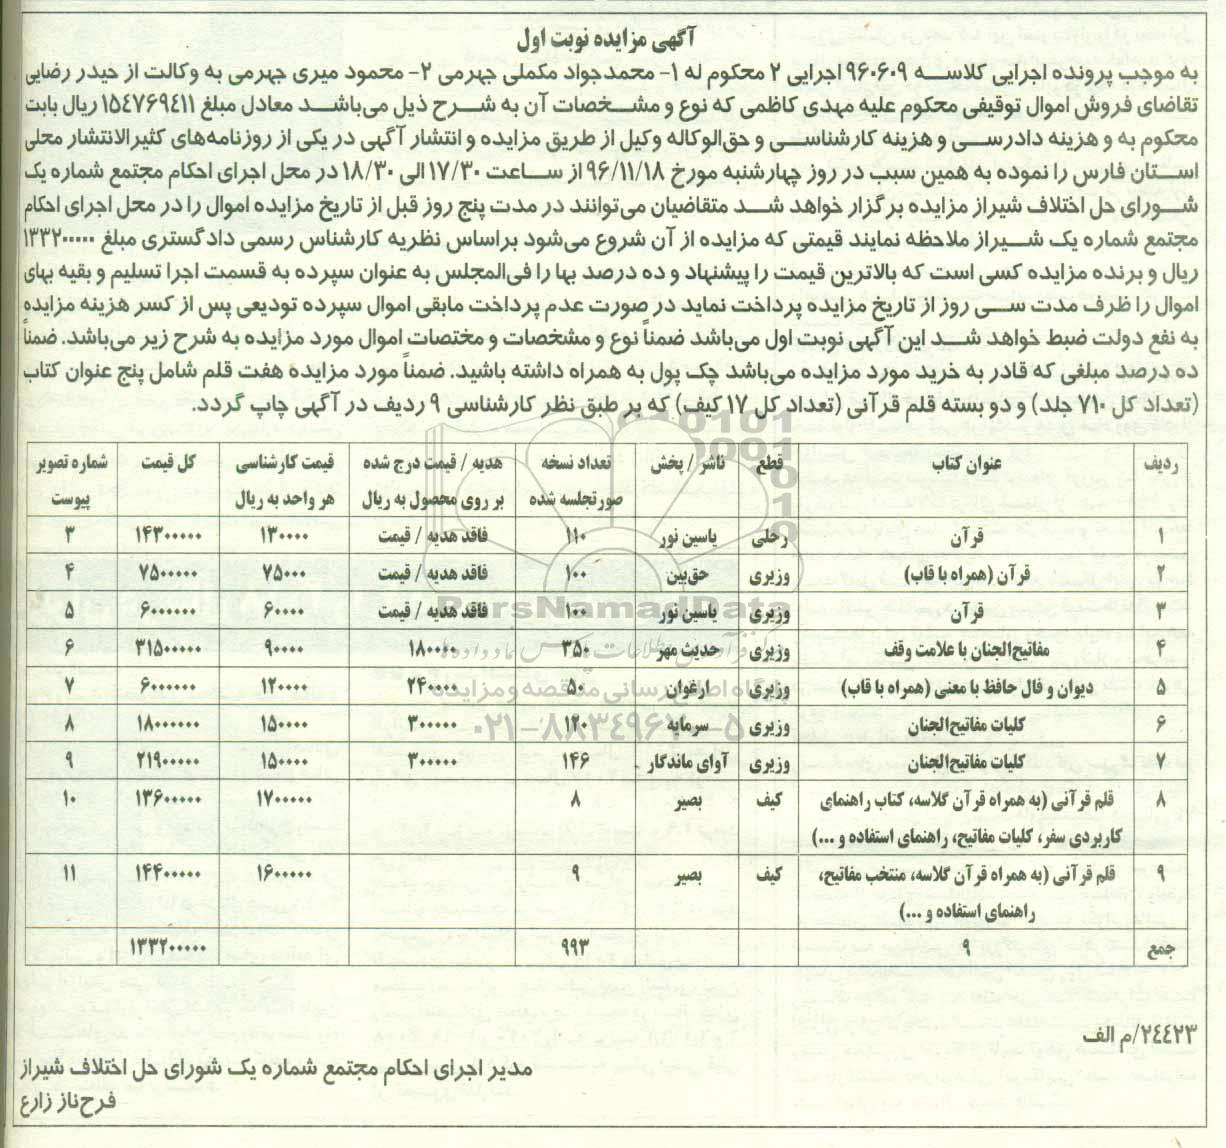 آگهی مزایده نوبت اول
به موجب پرونده اجرایی کلاسه ۹۶۰۶۰۹ اجرایی ۲ محکوم له ۱- محمدجواد مکملی جهرمی ۲- محمود میری جهرمی به وکالت از حیدر رضایی
تقاضای فروش اموال توقیفی محکوم علیه مهدی کاظمی که نوع و مشخصات آن به شرح ذیل می‌باشد معادل مبلغ ۱۵۴۷۶۹۴۱۱ ریال بابت
محکوم به و هزینه دادرسی و هزینه کارشناسی و حق‌الوکاله وکیل از طریق مزایده و انتشار آگهی در یکی از روزنامه‌های کثیرالانتشار محلی
استان فارس را نموده به همین سبب در روز چهارشنبه مورخ ۹۶/۱۱/۱۸ از ساعت ۱۷/۳۰ الی ۱۸/۳۰ در محل اجرای احکام مجتمع شماره یک
شورای حل اختلاف شیراز مزایده برگزار خواهد شد متقاضیان می‌توانند در مدت پنج روز قبل از تاریخ مزایده اموال را در محل اجرای احکام
مجتمع شماره یک شیراز ملاحظه نمایند قیمتی که مزایده از آن شروع می‌شود براساس نظریه کارشناس رسمی دادگستری مبلغ ۱۳۳۲۰۰۰۰۰
ریال و برنده مزایده کسی است که بالاترین قیمت را پیشنهاد و ده درصد بها را فی‌المجلس به عنوان سپرده به قسمت اجرا تسلیم و بقیه بهای
اموال را ظرف مدت سی روز از تاریخ مزایده پرداخت نماید در صورت عدم پرداخت مابقی اموال سپرده تودیعی پس از کسر هزینه مزایده
به نفع دولت ضبط خواهد شد این آگهی نوبت اول می‌باشد ضمناً نوع و مشخصات و مختصات اموال مورد مزایده به شرح زیر می‌باشد. ضمناً
ده درصد مبلغی که قادر به خرید مورد مزایده می‌باشد چک پول به همراه داشته باشید. ضمناً مورد مزایده هفت قلم شامل پنج عنوان کتاب
(تعداد کل ۷۱۰ جلد) و دو بسته قلم قرآنی (تعداد کل ۱۷ کیف) که بر طبق نظر کارشناسی ۹ ردیف در آگهی چاپ گردد.
ردیف عنوان کتاب قطع ناشر / پخش تعداد نسخه صورتجلسه شده هدیه / قیمت درج شده بر روی محصول به ریال قیمت کارشناسی هر واحد به ریال کل قیمت شماره تصویر پیوست
۱ قرآن رحلی یاسین نور ۱۱۰ فاقد هدیه / قیمت ۱۳۰۰۰۰ ۱۴۳۰۰۰۰۰ ۳
۲ قرآن (همراه با قاب) وزیری حق‌بین ۱۰۰ فاقد هدیه / قیمت ۷۵۰۰۰ ۷۵۰۰۰۰۰ ۴
۳ قرآن وزیری یاسین نور ۱۰۰ فاقد هدیه / قیمت ۶۰۰۰۰ ۶۰۰۰۰۰۰ ۵
۴ مفاتیح‌الجنان با علامت وقف وزیری حدیث مهر ۳۵۰ ۱۸۰۰۰۰ ۹۰۰۰۰ ۳۱۵۰۰۰۰۰ ۶
۵ دیوان و فال حافظ با معنی (همراه با قاب) وزیری ارغوان ۵۰ ۲۴۰۰۰۰ ۱۲۰۰۰۰ ۶۰۰۰۰۰۰ ۷
۶ کلیات مفاتیح‌الجنان وزیری سرمایه ۱۲۰ ۳۰۰۰۰۰ ۱۵۰۰۰۰ ۱۸۰۰۰۰۰۰ ۸
۷ کلیات مفاتیح‌الجنان وزیری آوای ماندگار ۱۴۶ ۳۰۰۰۰۰ ۱۵۰۰۰۰ ۲۱۹۰۰۰۰۰ ۹
۸ قلم قرآنی (به همراه قرآن گلاسه، کتاب راهنمای کاربردی سفر، کلیات مفاتیح، راهنمای استفاده و ...) کیف بصیر ۸ ۱۷۰۰۰۰۰ ۱۳۶۰۰۰۰۰ ۱۰
۹ قلم قرآنی (به همراه قرآن گلاسه، منتخب مفاتیح، راهنمای استفاده و ...) کیف بصیر ۹ ۱۶۰۰۰۰۰ ۱۴۴۰۰۰۰۰ ۱۱
جمع ۹ ۹۹۳ ۱۳۳۲۰۰۰۰۰
۲۴۴۲۳/م الف
مدیر اجرای احکام مجتمع شماره یک شورای حل اختلاف شیراز
فرح‌ناز زارع
ParsNamadData
پایگاه اطلاع رسانی مناقصه و مزایده
۰۲۱-۸۸۳۴۹۶۷۰-۵